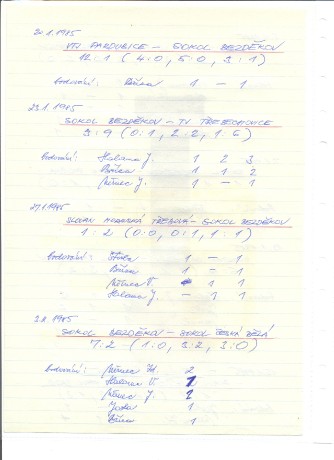 20.1.1985
VTJ PARDUBICE – SOKOL BEZDĚKOV
12:1 (4:0, 5:0, 3:1)
bodování: 1 – 1
23.1.1985
SOKOL BEZDĚKOV – TJ TŘEBECHOVICE
3:9 (0:1, 2:2, 1:6)
bodování: J. 1 2 3
1 1 2
Němec J. 1 – 1
27.1.1985
SLOVAN MORAVSKÁ TŘEBOVÁ – SOKOL BEZDĚKOV
1:2 (0:0, 0:1, 1:1)
bodování: 1 – 1
– 1 1
Němec V. – 1 1
J. – 1 1
SOKOL BEZDĚKOV – SOKOL ČESKÁ BĚLÁ
7:2 (1:0, 3:2, 3:0)
bodování: Němec 2
V. 1
Němec J. 2
1
1